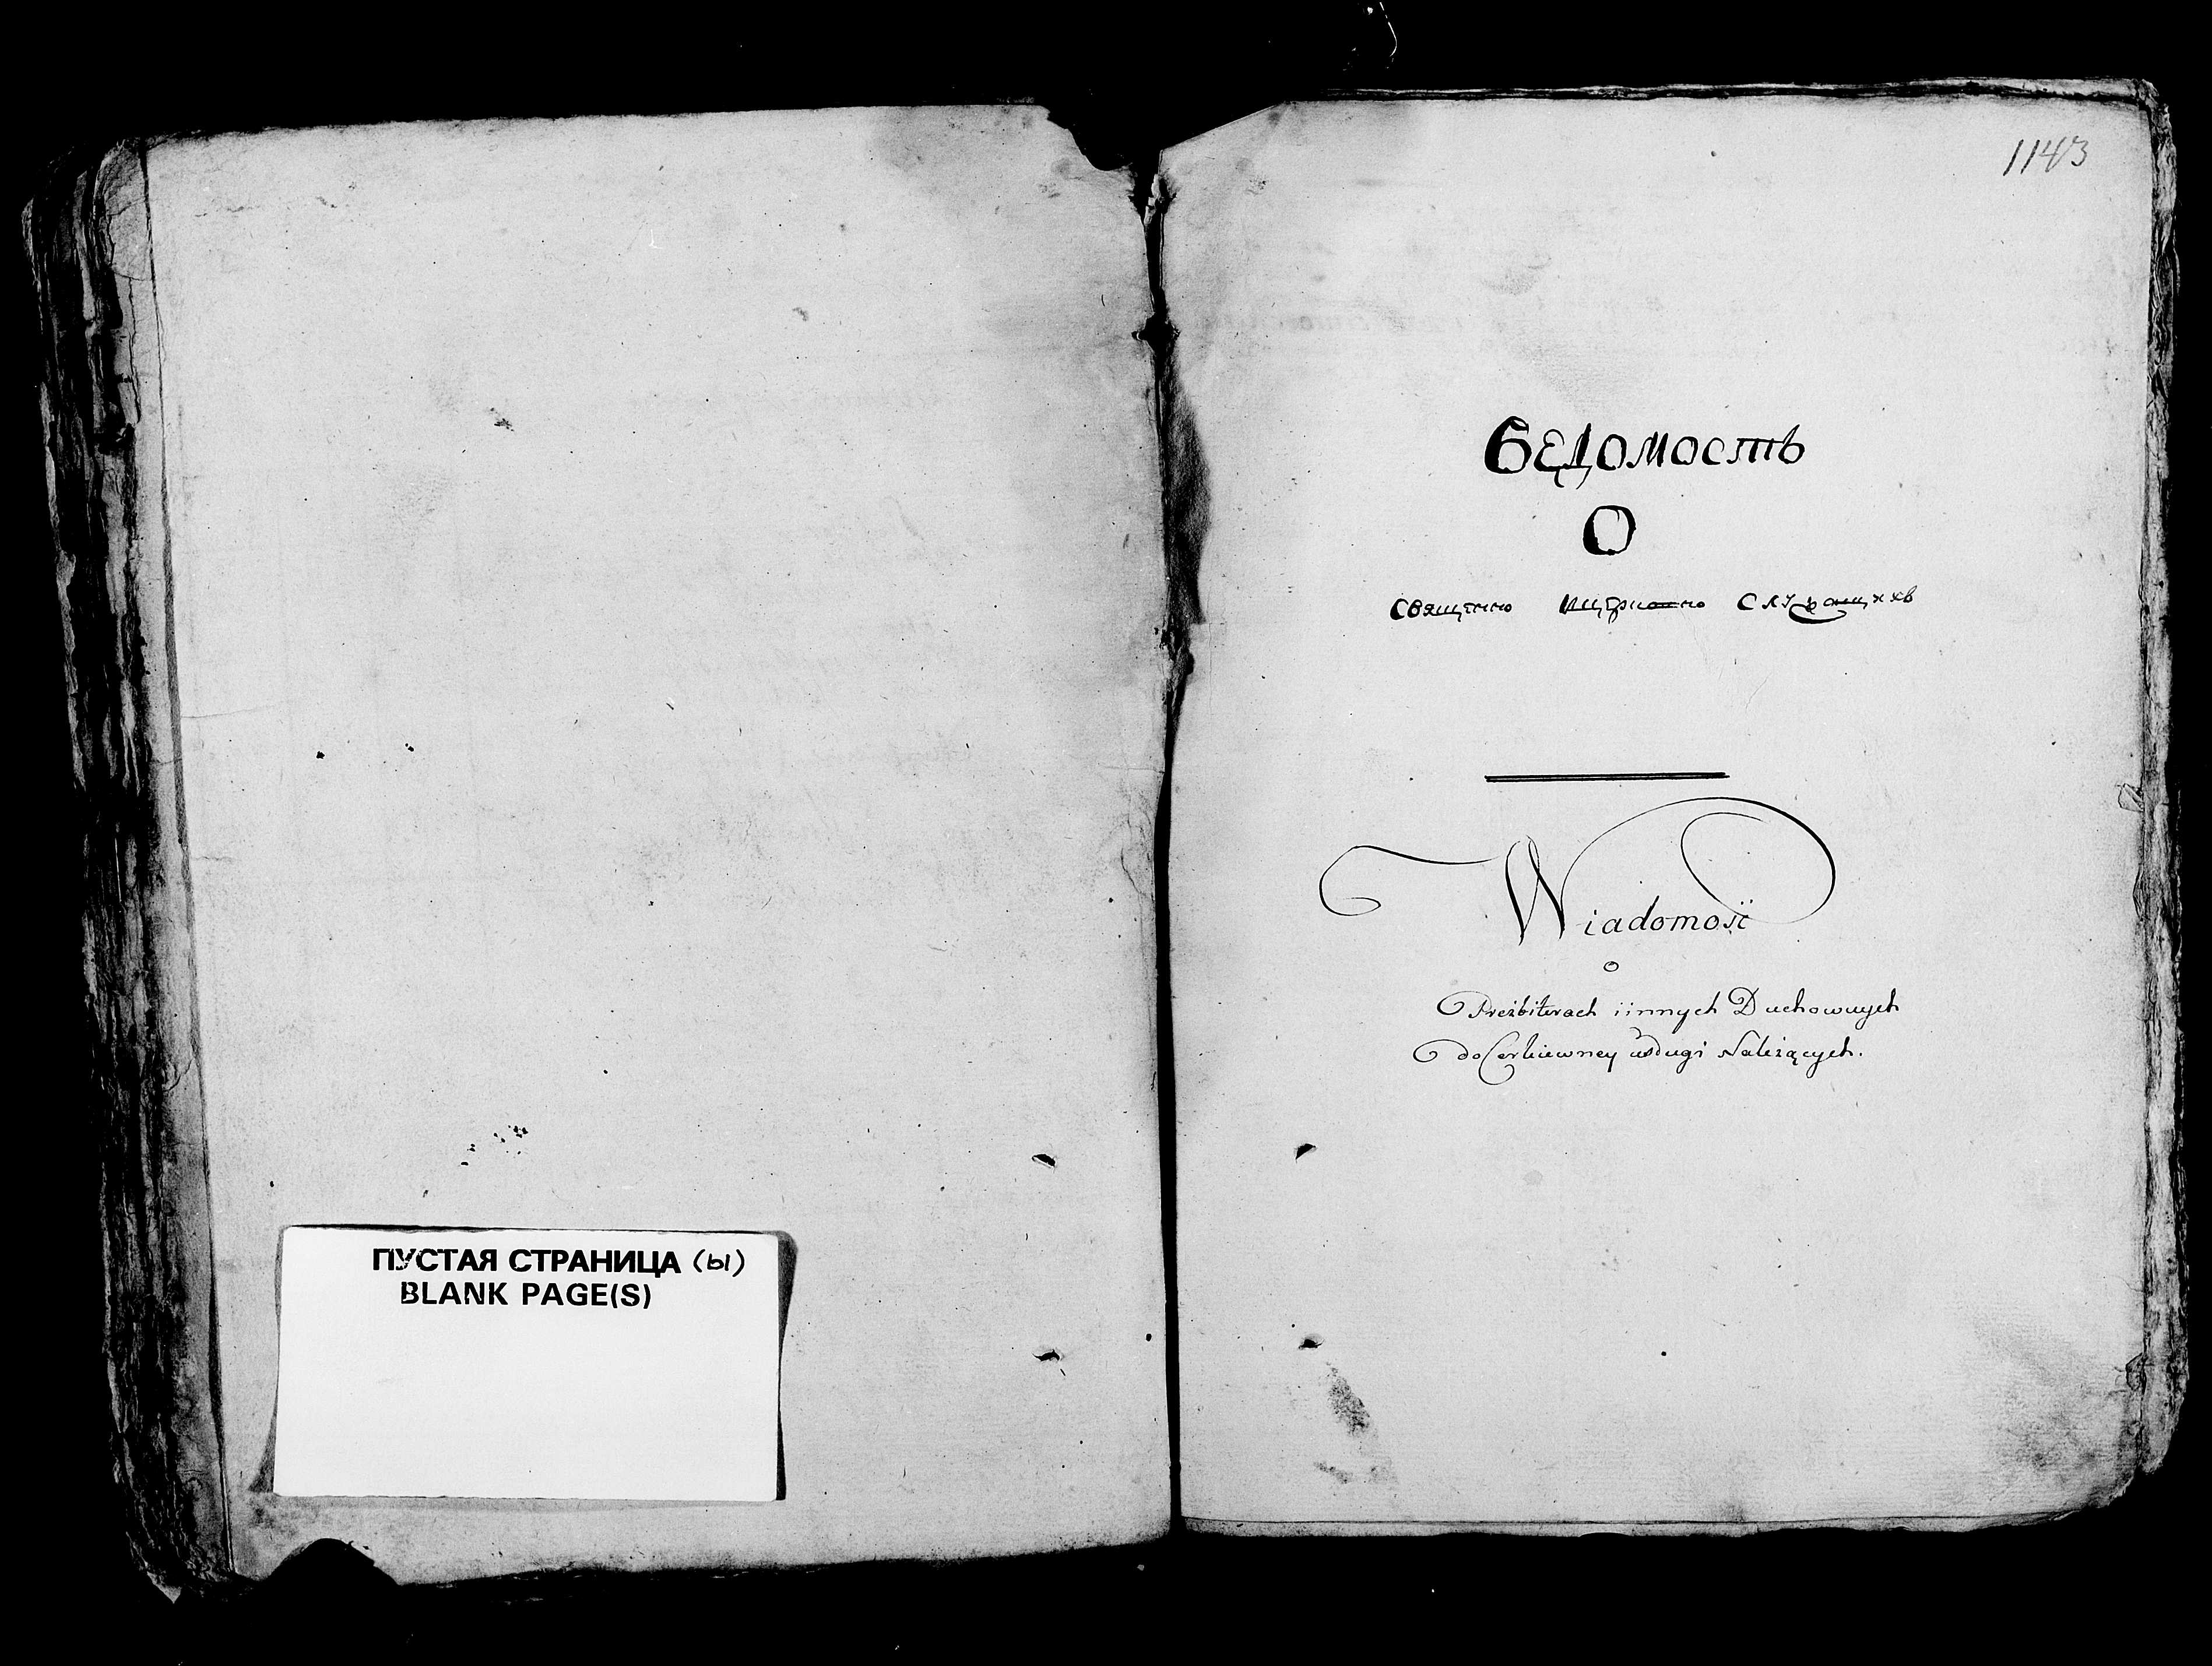 ПУСТАЯ СТРАНИЦА (ы)
BLANK PAGE(S)
1143
Ведомость
О
Священно и церковно служащихъ
Wiadomość
o
Prezbiterach i innych Duchownych
do Cerkiewney usługi Należących.